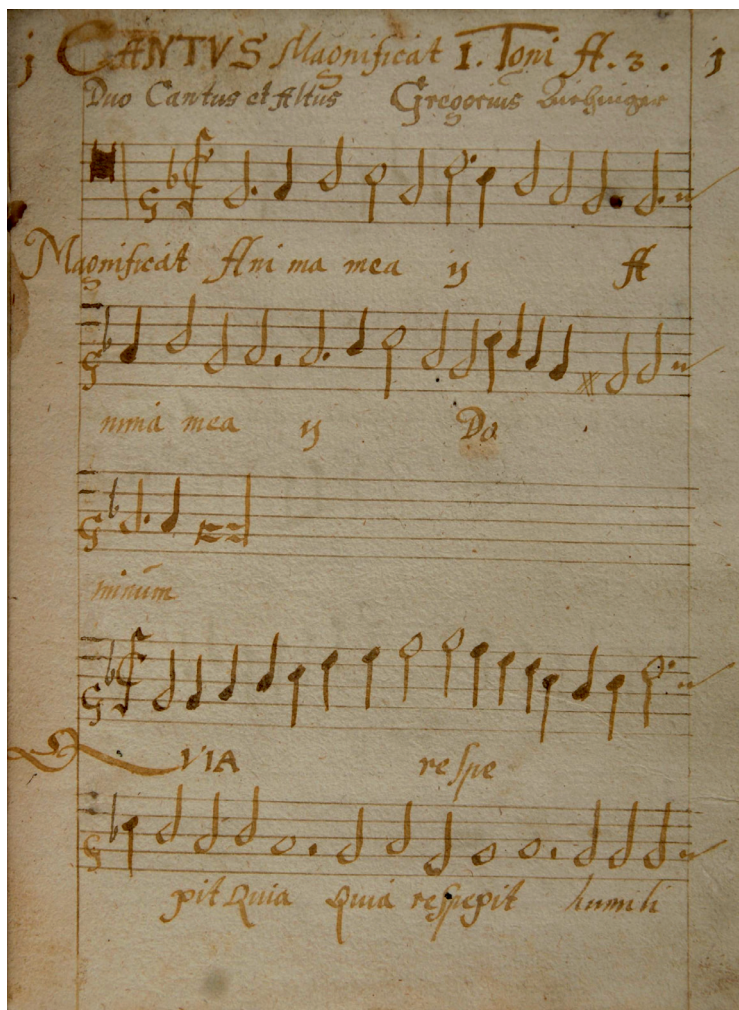 j CANTVS Magnificat I. Toni A. 3. j
Duo Cantus et Altus Gregorius
Magnificat Ani ma mea ij A
nima mea ij Do
minum
QVIA respe
pit Quia Quia respepit humili